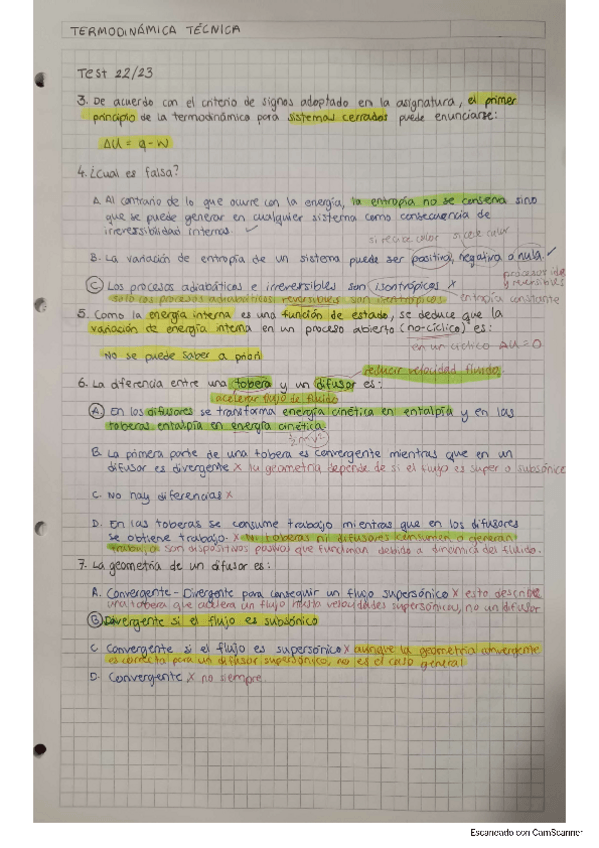 TERMODINÁMICA TÉCNICA
Test 22/23
3. De acuerdo con el criterio de signos adoptado en la asignatura, el primer
principio de la termodinámica para sistemas cerrados puede enunciarse:
ΔU = q - w
4. ¿Cual es falsa?
A. Al contrario de lo que ocurre con la energía, la entropía no se conserva sino
que se puede generar en cualquier sistema como consecuencia de
irreversibilidad internas ✓
si recibe calor si cede calor
B. La variación de entropía de un sistema puede ser positiva, negativa o nula. ✓
procesos
y reversibles
C. Los procesos adiabáticos e irreversibles son isentrópicos x
solo los procesos adiabáticos reversibles son isentrópicos entropía constante
5. Como la energía interna es una función de estado, se deduce que la
variación de energía interna en un proceso abierto (no-cíclico) es:
en un cíclico ΔU = 0
No se puede saber a priori
reducir velocidad fluido.
6. La diferencia entre una tobera y un difusor es:
acelerar flujo de fluido
A. En los difusores se transforma energía cinética en entalpía y en las
toberas entalpía en energía cinética
½ m v²
B. La primera parte de una tobera es convergente mientras que en un
difusor es divergente x su geometría depende de si el flujo es super o subsónico
C. No hay diferencias x
D. En las toberas se consume trabajo mientras que en los difusores
se obtiene trabajo. x ni toberas ni difusores consumen o generan
trabajo, son dispositivos pasivos que funcionan debido a dinámica del fluido.
7. La geometría de un difusor es:
A. Convergente - Divergente para conseguir un flujo supersónico x esto describe
una tobera que acelera un flujo hasta velocidades supersónicas, no un difusor
B. Divergente si el flujo es subsónico
C. Convergente si el flujo es supersónico x aunque la geometría convergente
es correcta para un difusor supersónico, no es el caso general
D. Convergente x no siempre.
Escaneado con CamScanner